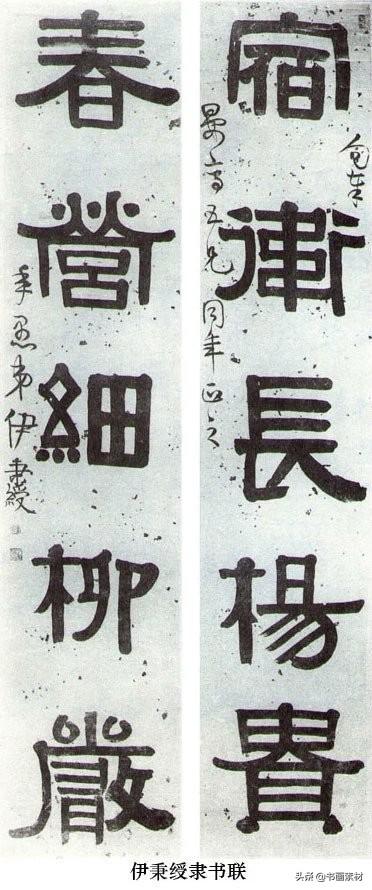 宿衛長楊貴
五兄同年正之
春營細柳嚴
年愚弟伊秉綬
伊秉绶隶书联
头条@书画素材